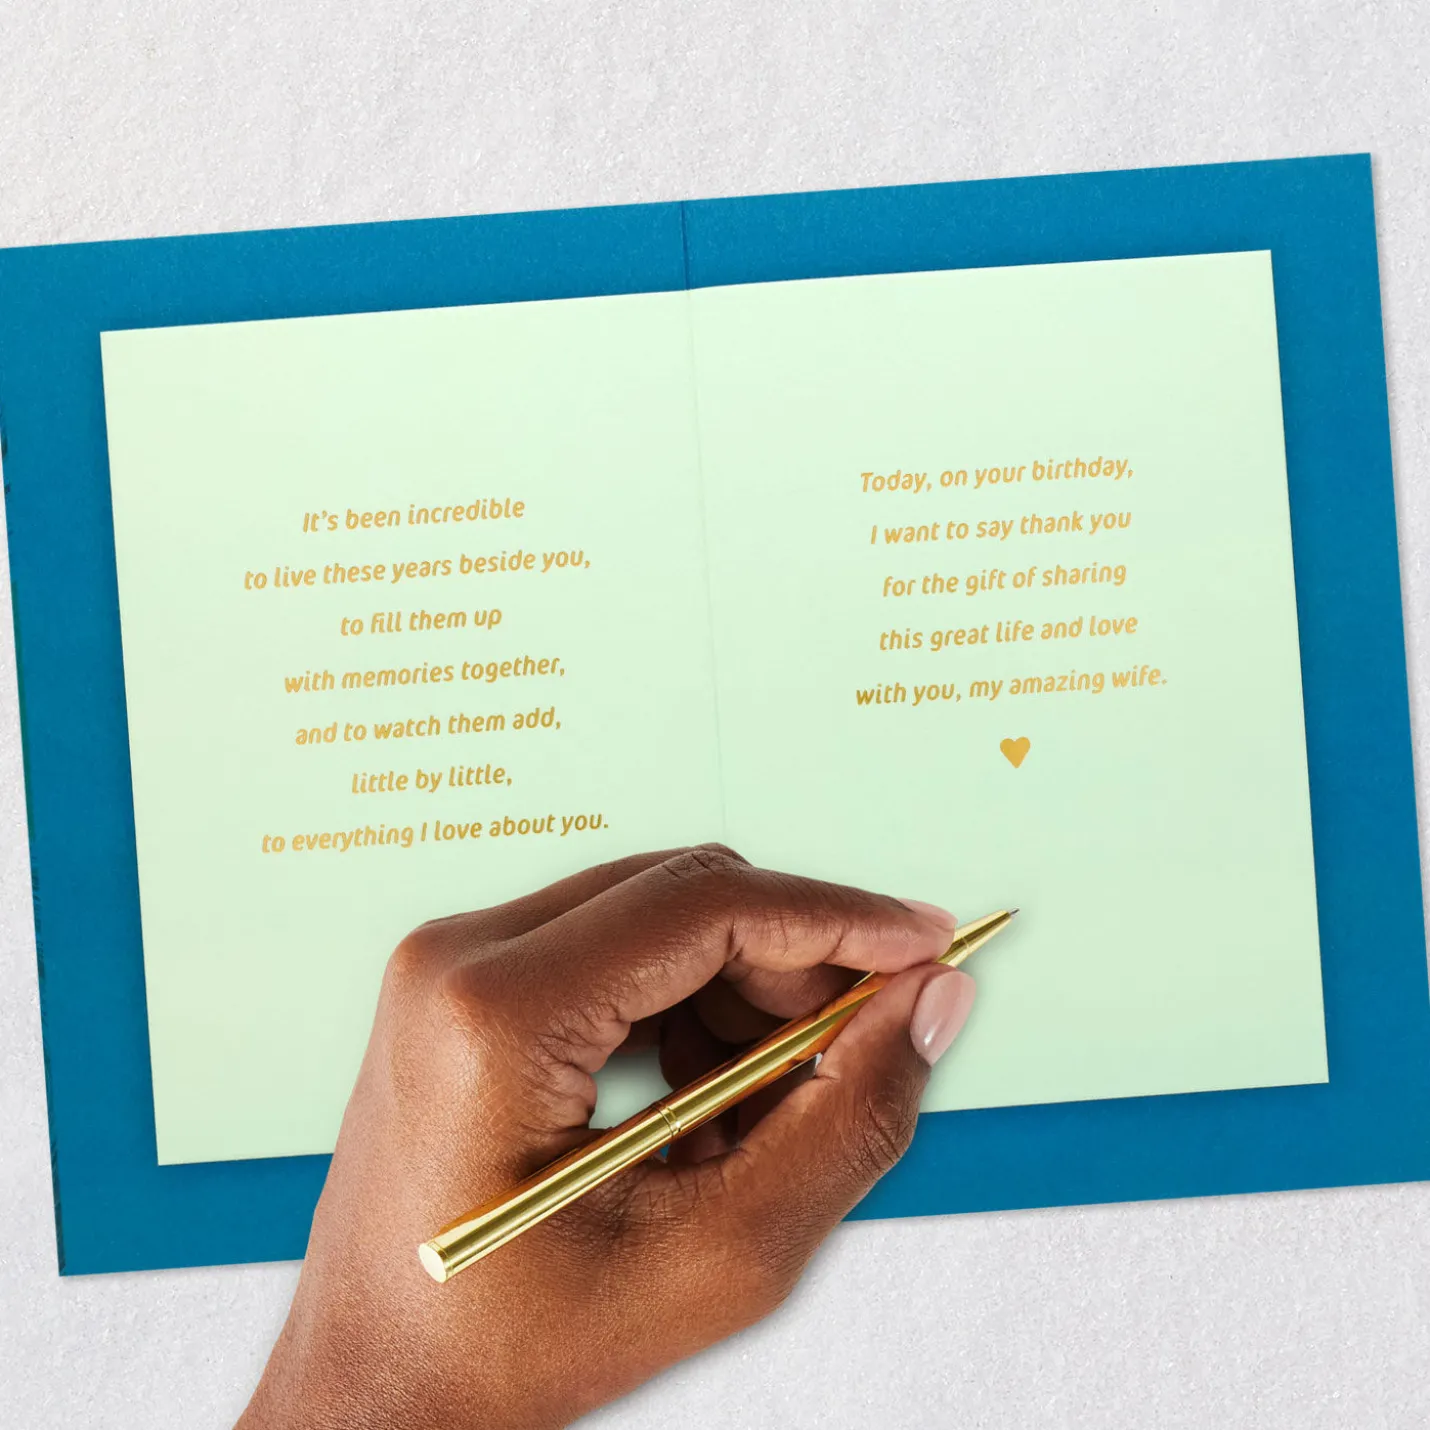 It's been incredible
to live these years beside you,
to fill them up
with memories together,
and to watch them add,
little by little,
to everything I love about you.
Today, on your birthday,
I want to say thank you
for the gift of sharing
this great life and love
with you, my amazing wife.